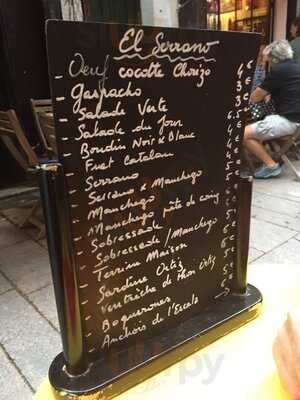 El Serrano
- Oeuf cocotte Chorizo 4 €
- Gaspacho 3 €
- Salade Verte 3 €
- Salade du jour
- Boudin Noir & Blanc
- Fuet Catalan
- Serrano
- Serrano & Manchego
- Manchego
- Manchego pâte de coing
- Sobressade
- Sobressade / Manchego
- Terrine Maison
- Sardine Ortiz
- Ventrèche de thon Ortiz
- Boquerones
- Anchois de l'Escala